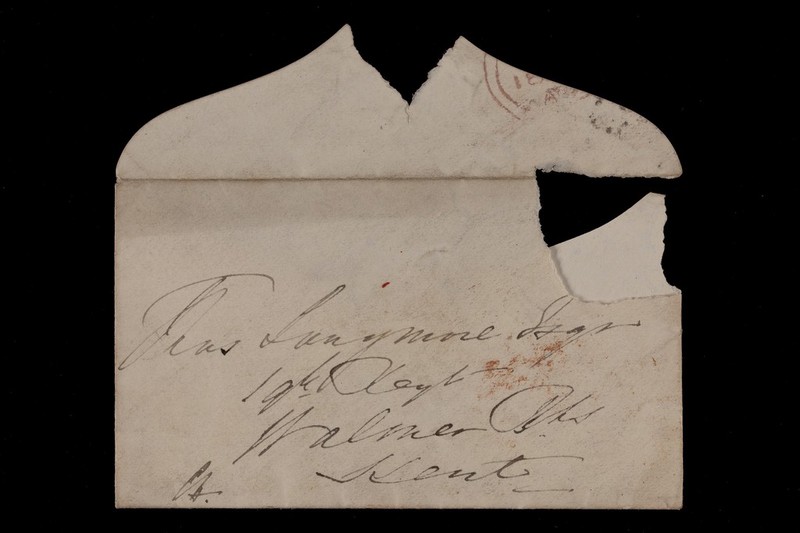 18
Thos Langmore Esqr
19th Regt
Walmer Bks
Kent